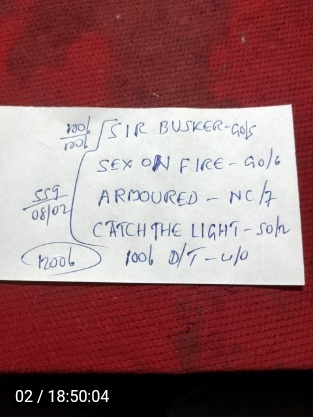 100b/100b SIR BUSKER-GO/5
SEX ON FIRE - GO/6
559/08/02 ARMOURED - NC/7
CATCH THE LIGHT - SO/2
1200b 100b D/T - u/0
02 / 18:50:04